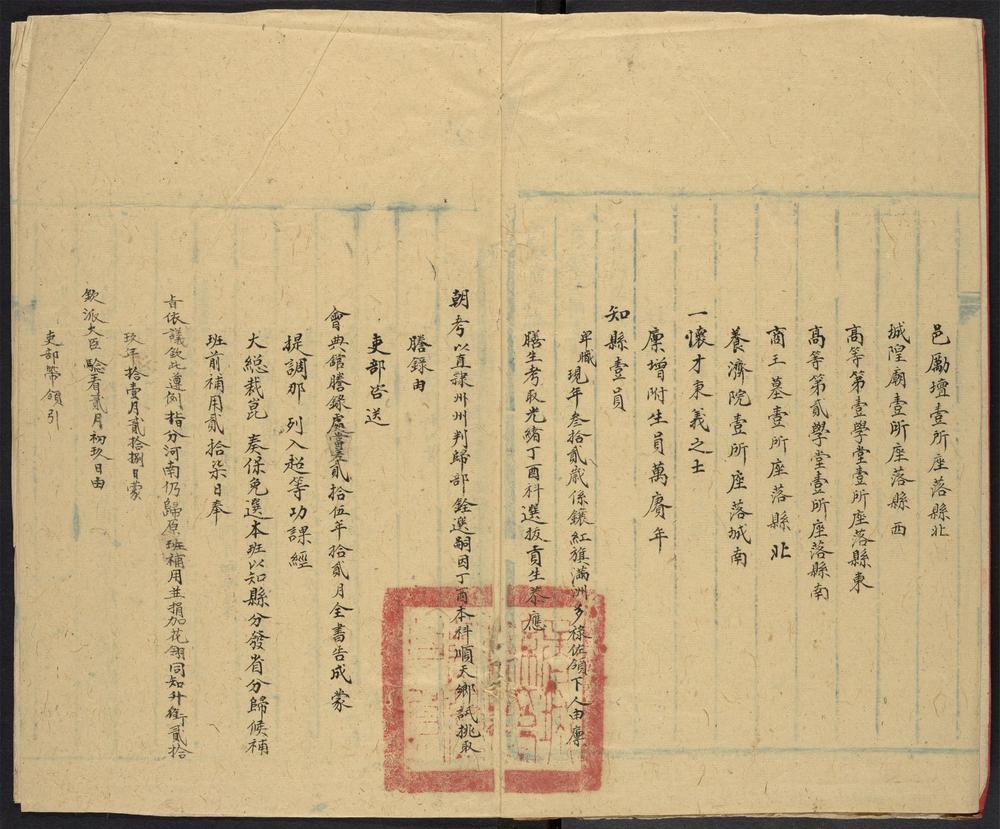 邑厲壇壹所座落縣北
城隍廟壹所座落縣西
高等第壹學堂壹所座落縣東
高等第貳學堂壹所座落縣南
商王墓壹所座落縣北
養濟院壹所座落城南
一懷才東義之士
廩增附生員萬賡年
知縣壹員
卑職現年叁拾貳歲係鑲紅旗滿洲多祿佐領下人由廩
膳生考取光緒丁酉科選拔貢生恭應
朝考以直隸州州判歸部銓選嗣因丁酉本科順天鄉試挑取
謄錄由
吏部咨送
會典館謄錄處當差貳拾伍年拾貳月全書告成蒙
提調那 列入超等功課經
大總裁崑 奏保免選本班以知縣分發省分歸候補
班前補用貳拾柒日奉
旨依議欽此遵例指分河南仍歸原班補用並捐加花翎同知升銜貳拾
玖年拾壹月貳拾捌日蒙
欽派大臣驗看貳月初玖日由
吏部帶領引